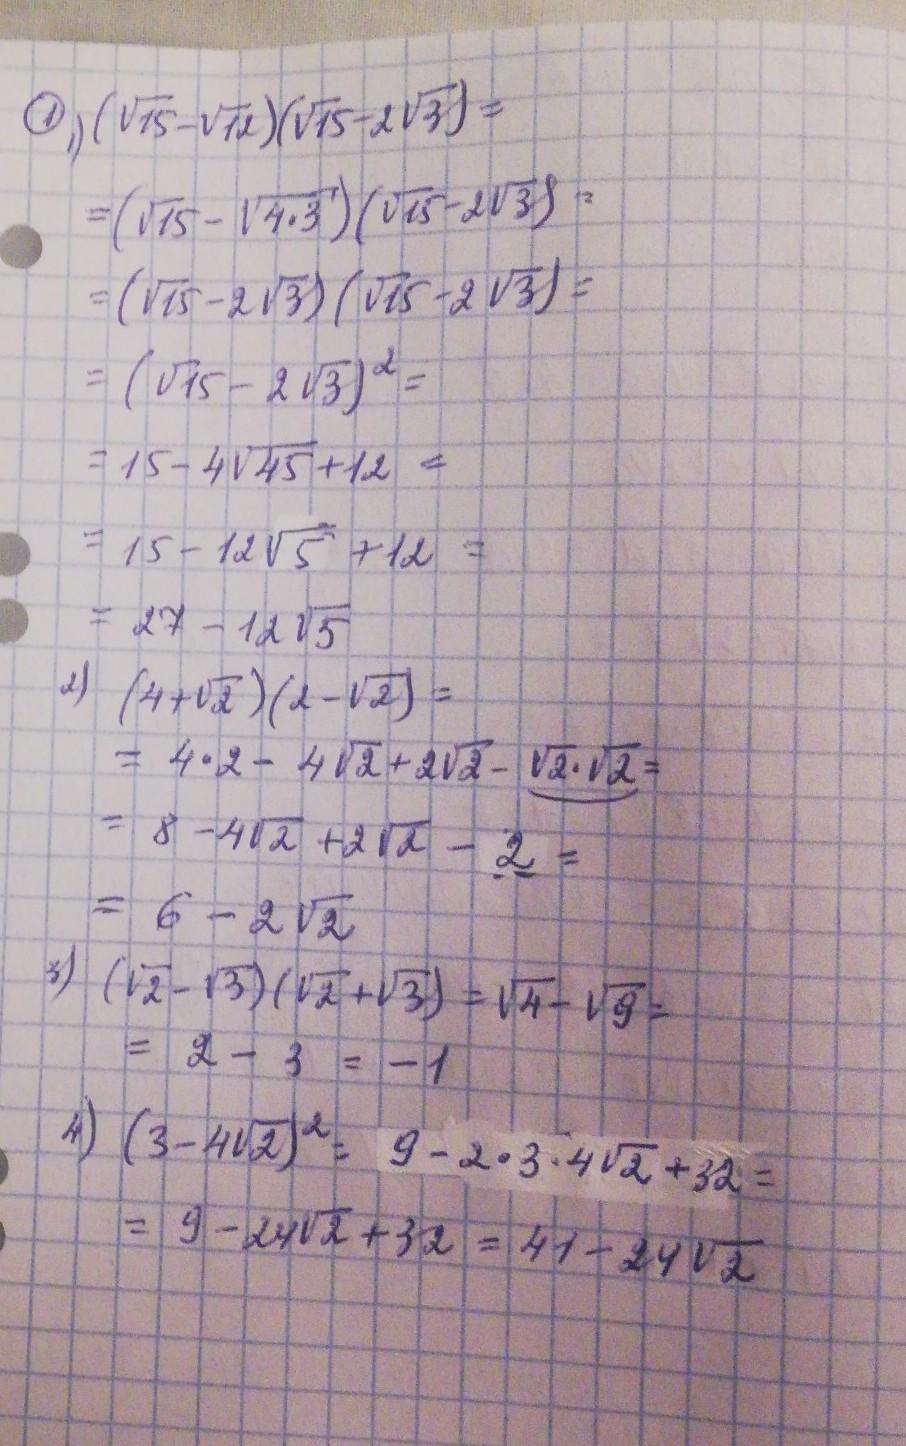 ① 1) (√15-√12)(√15-2√3)=
=(√15-√4·3)(√15-2√3)=
=(√15-2√3)(√15-2√3)=
=(√15-2√3)²=
=15-4√45+12=
=15-12√5+12=
=27-12√5
2) (4+√2)(2-√2)=
=4·2-4√2+2√2-√2·√2=
=8-4√2+2√2-2=
=6-2√2
3) (√2-√3)(√2+√3)=√4-√9=
=2-3=-1
4) (3-4√2)²=9-2·3·4√2+32=
=9-24√2+32=41-24√2